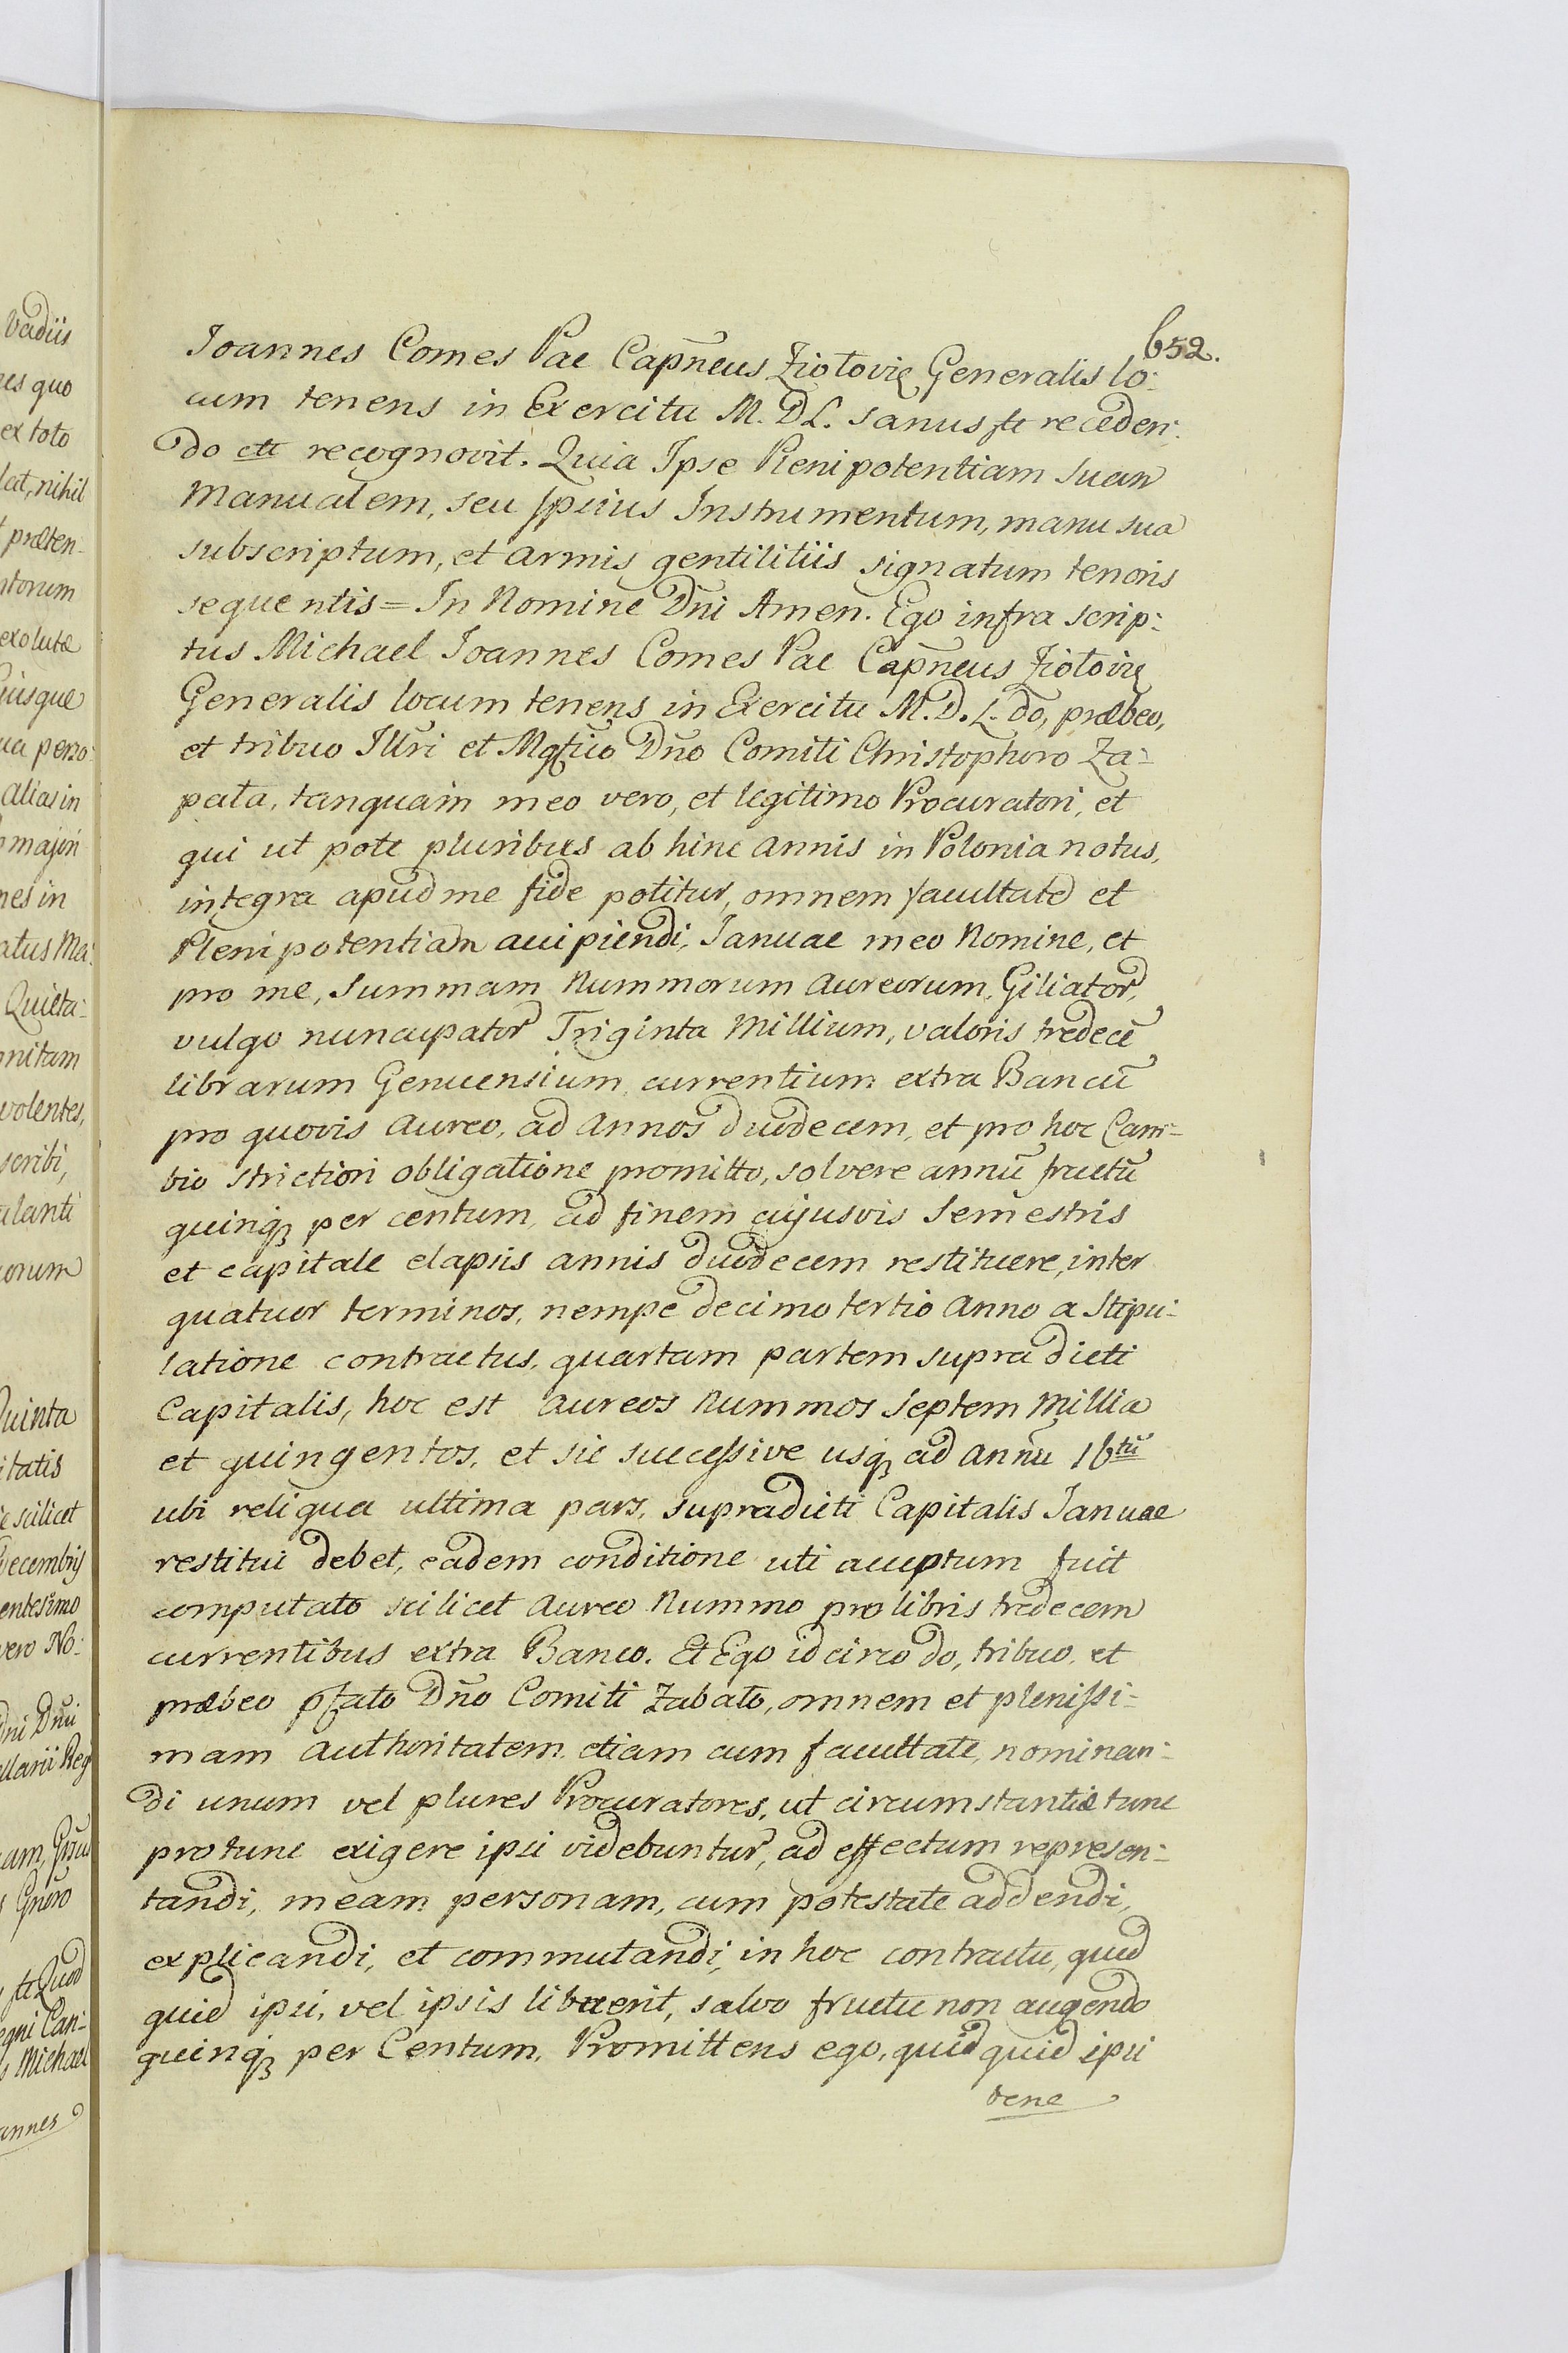 652.
Joannes Comes Pac Capñeus Ziotovię Generalis lo:
cum tenens in Exercitu M. D L. sanus etc receden:
do etc recognovit. Quia Ipse Plenipotentiam suam
Manualem, seu ipsius Instrumentum, manu sua
subscriptum, et armis gentilitiis signatum tenoris
sequentis = In Nomine Dñi Amen. Ego infra scrip:
tus Michael Joannes Comes Pac Capñeus Ziotovię
Generalis locum tenens in Exercitu M. D. L. do, præbeo,
et tribuo Illri et Mgfico Dño Comiti Christophoro Za=
pata, tanquam meo vero, et legitimo Procuratori, et
qui ut pote pluribus ab hinc annis in Polonia notus,
integra apud me fide potitur, omnem facultatē et
Plenipotentiam accipiendi, Januae meo Nomine, et
pro me, Summam Nummorum Aureorum, Giliator,
vulgo nuncupator Triginta Millium, valoris tredecē
librarum Genuensium currentium extra Bancū
pro quovis Aureo, ad Annos duodecem, et pro hoc Cam=
bio strictiori obligatione promitto, solvere annū fructū
quinqȝ per centum, ad finem cujusvis Semestris
et capitale elapsis annis duodecem restituere, inter
quatuor terminos, nempe decimo tertio Anno a Stipu:
latione contractus, quartam partem supra dicti
Capitalis, hoc est Aureos Nummos Septem Millia
et quingentos, et sic successive usqȝ ad annū 16tū
ubi reliqua ultima pars, supradicti Capitalis Januae
restitui debet, eadem conditione uti acceptum fuit
computato scilicet Aureo Nummo pro libris tredecem
currentibus extra Banco. Et Ego idcirco do, tribuo, et
præbeo pfato Dño Comiti Zabato, omnem et plenissi=
mam authoritatem, etiam cum facultate, nominan:
di unum vel plures Procuratores, ut circumstantiæ tunc
pro tunc exigere ipsi videbuntur, ad effectum represen:
tandi, meam personam, cum potestate addendi,
explicandi, et commutandi, in hoc contractu, quid
quid ipsi, vel ipsis libuerit, salvo fructu non augendo
quinqȝ per Centum. Promittens ego, quid quid ipsi
bene
Vadiis
res quo
ex toto
nihil
præten-
exolutæ
perso:
alias in
majori
nes in
Quieta:
volentes,
scribi,
Quinta
scilicet
vero No:
Dñi Dñi
etc Quod
Michael
annes